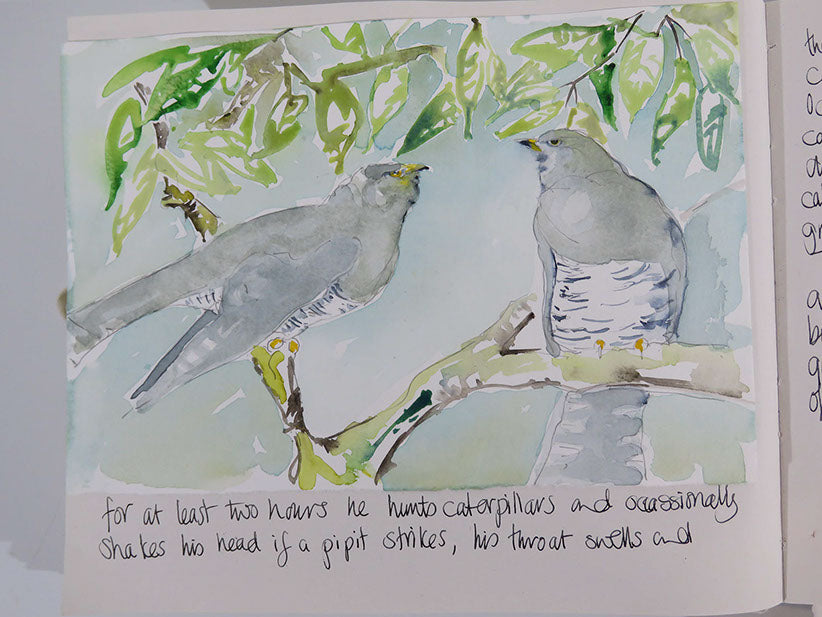 for at least two hours he hunts caterpillars and ocassionally
shakes his head if a pipit strikes, his throat swells and